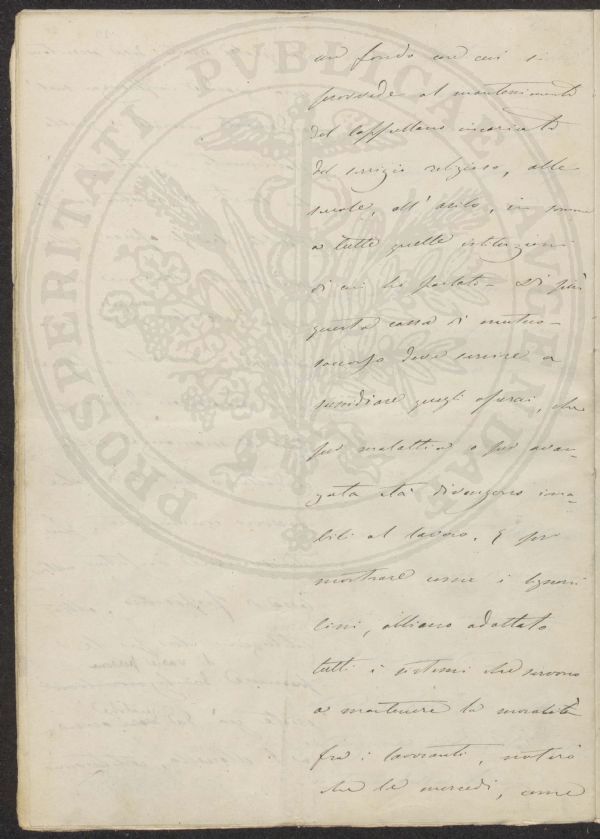 un fondo con cui si
provvede al mantenimento
del Cappellano incaricato
del servizio religioso, alle
scuole, all' asilo, in somma
a tutte quelle istituzioni
di cui ho parlato - Di più
questa cassa di mutuo-
soccorso deve servire a
sussidiare quegli operai, che
per malattia o per avan-
zata età divengono ina-
bili al lavoro. E per
mostrare come i Signori
Cini, abbiano adottato
tutti i sistemi che servono
a mantenere la moralità
fra i lavoranti, noterò
che le mercedi, come
PROSPERITATI PUBLICAE AUGENDAE